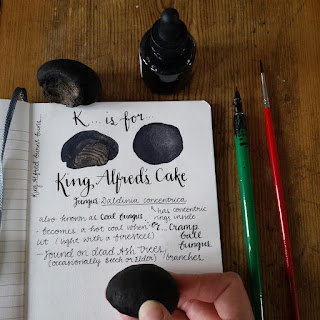 K... is for...
King Alfred's Cake
Fungus Daldinia concentrica
also known as Coal fungus
* has concentric
rings inside
- becomes a hot coal when
lit (light with a firesteel)
Cramp
ball
fungus
- Found on dead Ash trees,
(occasionally Beech or Elder) branches
King Alfred burnt buns